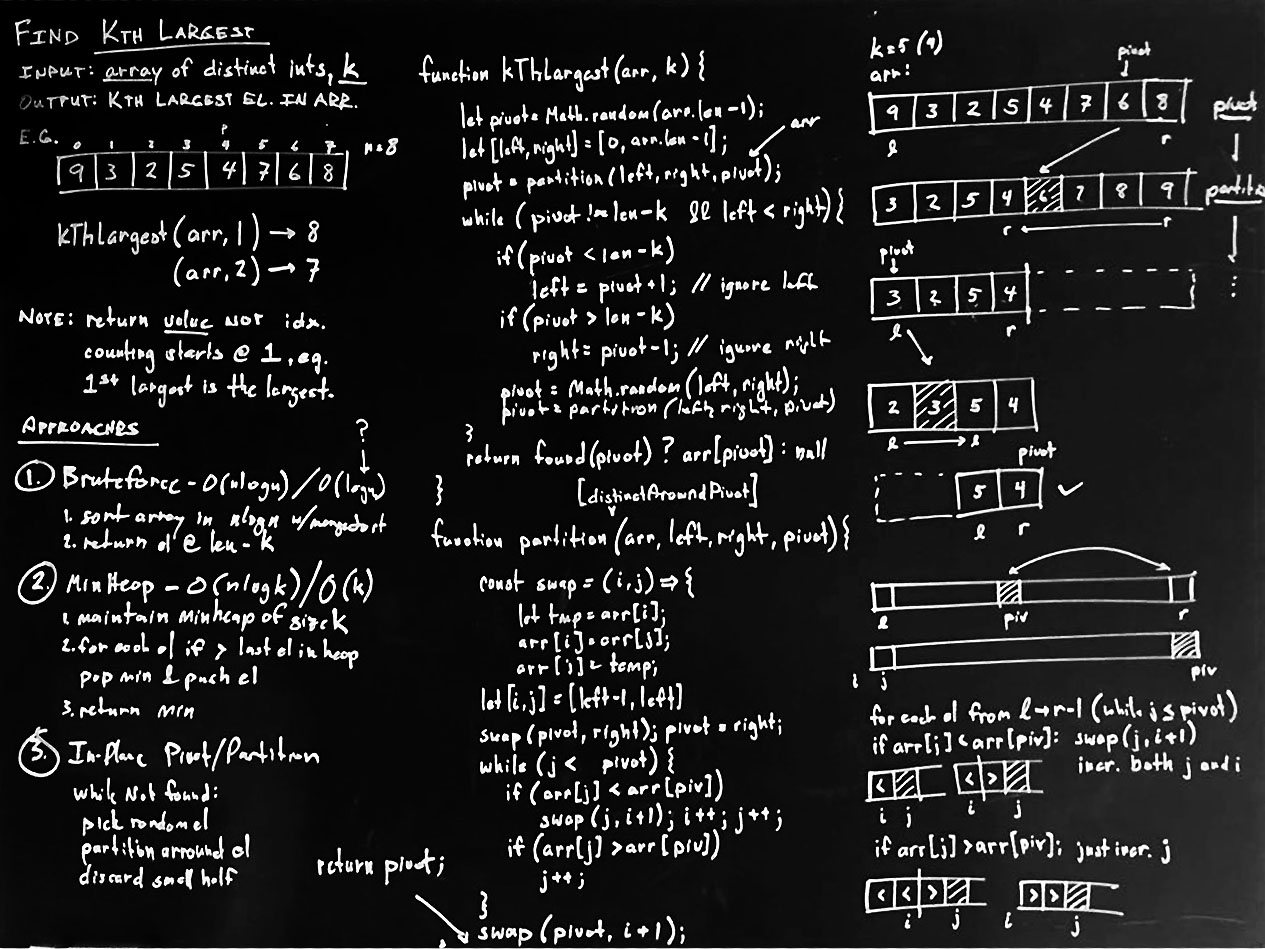 FIND KTH LARGEST
INPUT: array of distinct ints, k
OUTPUT: KTH LARGEST EL. IN ARR.
E.G.
P
0 1 2 3 4 5 6 7 n=8
9 3 2 5 4 7 6 8
kThLargest(arr, 1) → 8
(arr, 2) → 7
NOTE: return value NOT idx.
counting starts @ 1, eg.
1st largest is the largest.
APPROACHES
?
1. Bruteforce - O(nlogn)/O(logn)
1. sort array in nlogn w/mergesort
2. return el @ len - k
2. MinHeap - O(nlogk)/O(k)
1. maintain minheap of size k
2. for each el if > last el in heap
pop min & push el
3. return min
3. In-Place Pivot/Partition
while Not found:
pick random el
partition arround el
discard small half
function kThLargest(arr, k) {
let pivot = Math.random(arr.len-1);
let [left, right] = [0, arr.len-1];
arr
pivot = partition(left, right, pivot);
while (pivot != len-k && left < right) {
if (pivot < len-k)
left = pivot+1; // ignore left
if (pivot > len-k)
right = pivot-1; // ignore right
pivot = Math.random(left, right);
pivot = partition(left, right, pivot)
}
return found(pivot) ? arr[pivot] : null
}
[distinctAroundPivot]
function partition(arr, left, right, pivot) {
const swap = (i, j) => {
let tmp = arr[i];
arr[i] = arr[j];
arr[j] = temp;
let [i, j] = [left-1, left]
swap(pivot, right); pivot = right;
while (j < pivot) {
if (arr[j] < arr[piv])
swap(j, i+1); i++; j++;
if (arr[j] > arr[piv])
j++;
}
return pivot;
swap(pivot, i+1);
k=5 (4)
arr:
pivot
9 3 2 5 4 7 6 8
l r
pivot
3 2 5 4 6 7 8 9
partition
r
pivot
3 2 5 4
l r
⋮
2 3 5 4
l → l
pivot
5 4 ✓
l r
l piv r
i j piv
for each el from l→r-1 (while j ≤ pivot)
if arr[j] < arr[piv]: swap(j, i+1)
incr. both j and i
< < >
i j i j
if arr[j] > arr[piv]; just incr. j
< < > > >
i j i j